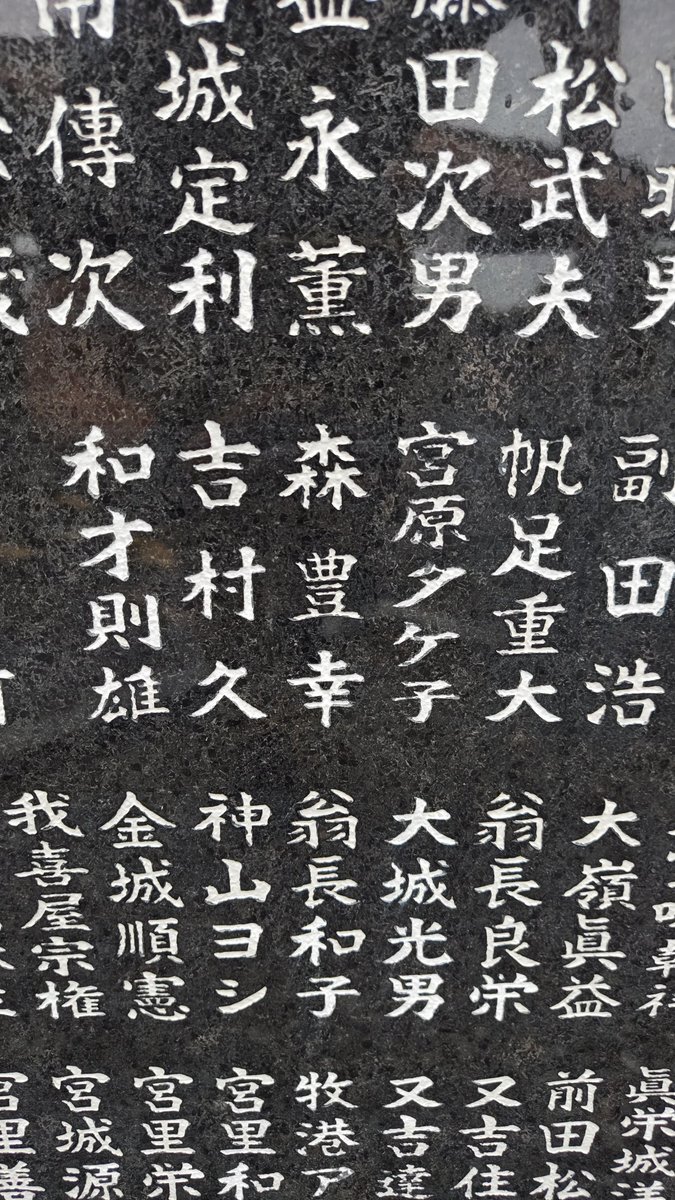 明男
松武夫
藤田次男
益永薫
城定利
南傳次
副田浩
帆足重大
宮原タケ子
森豊幸
吉村久
和才則雄
大嶺眞益
翁長良栄
大城光男
翁長和子
神山ヨシ
金城順憲
我喜屋宗権
眞栄城
前田松
又吉住
又吉達
牧港ア
宮里和
宮里栄
宮城源
宮里善